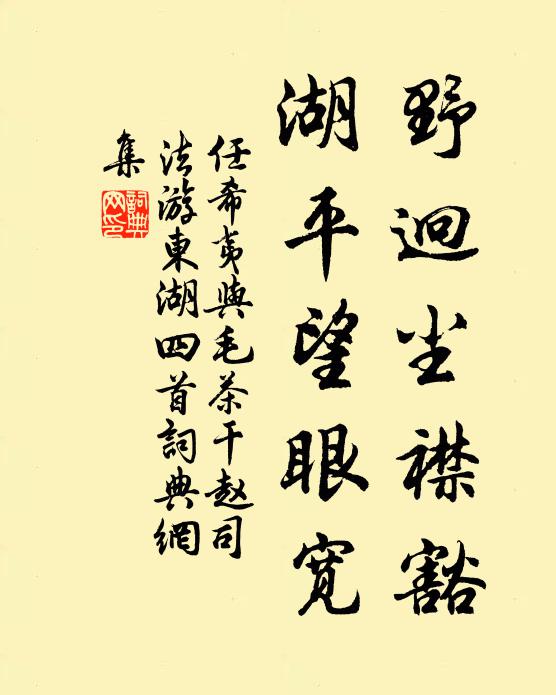 野迥尘襟豁
湖平望眼宽
任希夷與毛茶干赵司
法游東湖四首詞典網
集
詞典
网印